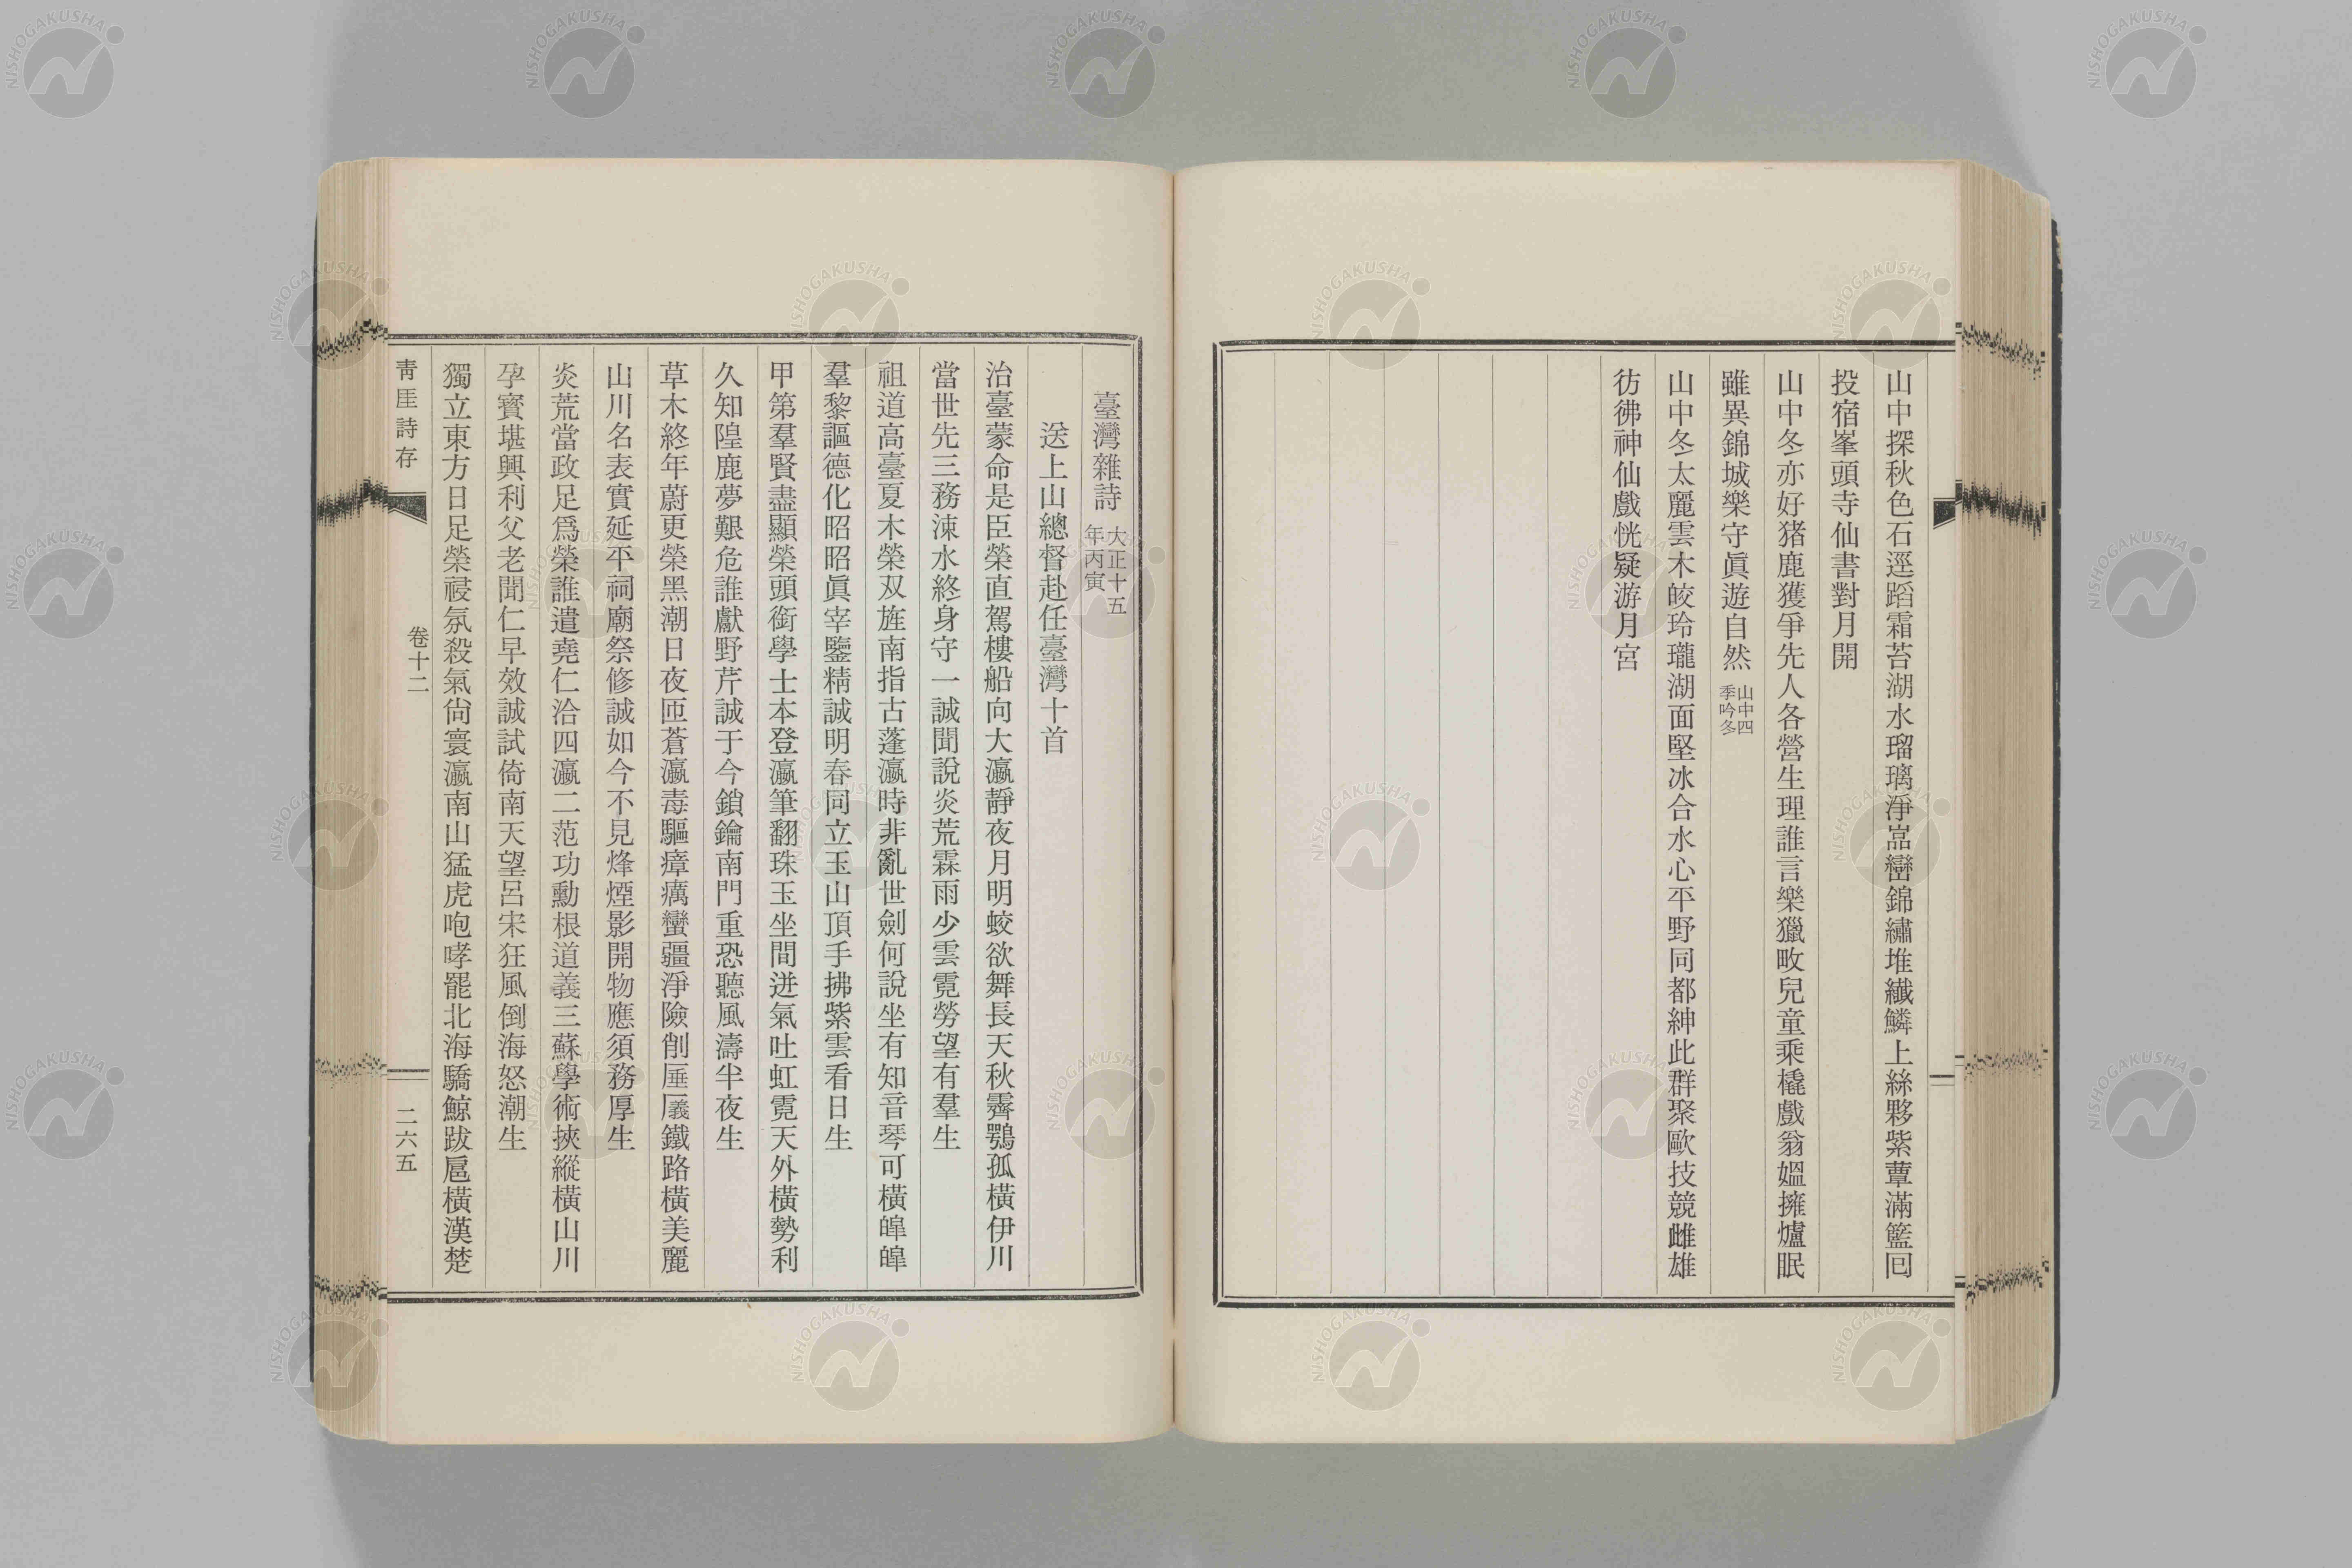 山中探秋色石逕蹈霜苔湖水瑠璃淨嵓巒錦繡堆纖鱗上絲夥紫蕈滿籃回
投宿峯頭寺仙書對月開
山中冬亦好猪鹿獲爭先人各營生理誰言樂獵畋兒童乘橇戲翁媼擁爐眠
雖異錦城樂守眞遊自然 山中四季吟冬
山中冬太麗雲木皎玲瓏湖面堅冰合水心平野同都紳此群聚歐技競雌雄
彷彿神仙戲恍疑游月宮
臺灣雜詩 大正十五年丙寅
送上山總督赴任臺灣十首
治臺蒙命是臣榮直駕樓船向大瀛靜夜月明蛟欲舞長天秋霽鶚孤橫伊川
當世先三務涑水終身守一誠聞說炎荒霖雨少雲霓勞望有羣生
祖道高臺夏木榮双旌南指古蓬瀛時非亂世劍何說坐有知音琴可橫皥皥
羣黎謳德化昭昭眞宰鑒精誠明春同立玉山頂手拂紫雲看日生
甲第羣賢盡顯榮頭銜學士本登瀛筆翻珠玉坐間迸氣吐虹霓天外橫勢利
久知隍鹿夢艱危誰獻野芹誠于今鎖鑰南門重恐聽風濤半夜生
草木終年蔚更榮黑潮日夜匝蒼瀛毒驅瘴癘蠻疆淨險削厜㕒鐵路橫美麗
山川名表實延平祠廟祭修誠如今不見烽煙影開物應須務厚生
炎荒當政足爲榮誰遣堯仁洽四瀛二范功勳根道義三蘇學術挾縱橫山川
孕寶堪興利父老聞仁早效誠試倚南天望呂宋狂風倒海怒潮生
獨立東方日足榮祲氛殺氣尙寰瀛南山猛虎咆哮罷北海驕鯨跋扈橫漢楚
靑厓詩存
卷十二
二六五
NISHOGAKUSHA